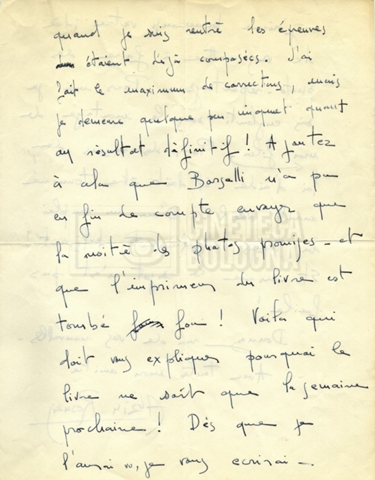 quand je suis rentré les épreuves
étaient déjà composées. J'ai
fait le maximum de corrections, mais
je demeure quelque peu inquiet quant
au résultat définitif ! Ajoutez
à cela que Borselli n'a pu
en fin de compte envoyer que
la moitié des photos promises - et
que l'imprimeur du livre est
tombé fou ! Voilà qui
doit vous expliquer pourquoi le
livre ne sort que la semaine
prochaine ! Dès que je
l'aurai vu, je vous écrirai -
CINETECA
BOLOGNA